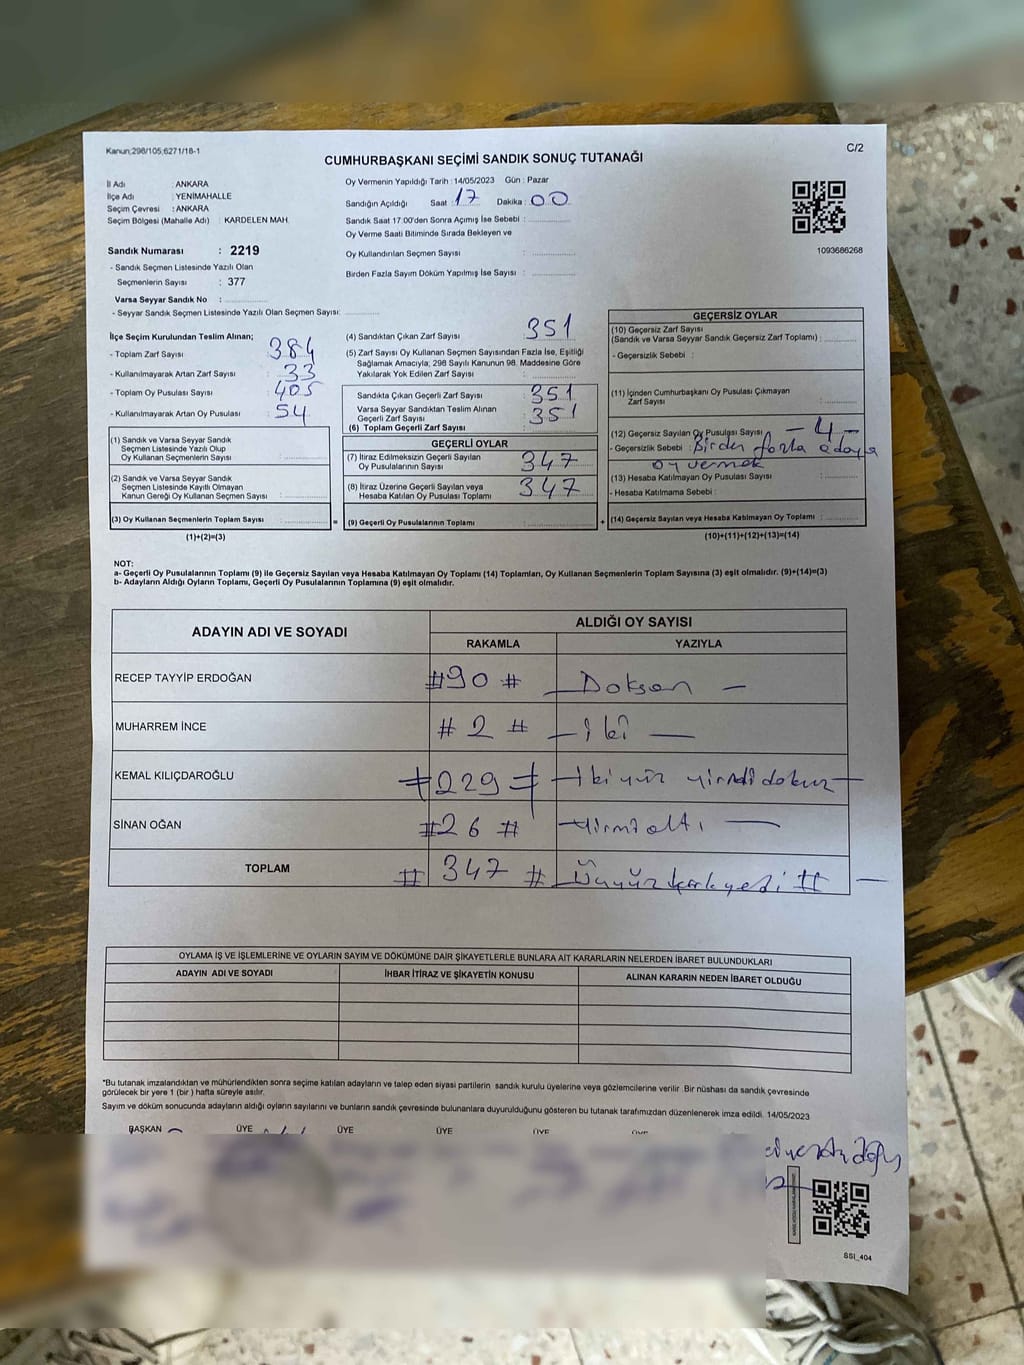 Kanun:298/105;6271/18-1
C/2
CUMHURBAŞKANI SEÇİMİ SANDIK SONUÇ TUTANAĞI
İl Adı : ANKARA
İlçe Adı : YENİMAHALLE
Seçim Çevresi : ANKARA
Seçim Bölgesi (Mahalle Adı) : KARDELEN MAH.
Sandık Numarası : 2219
- Sandık Seçmen Listesinde Yazılı Olan
Seçmenlerin Sayısı : 377
Varsa Seyyar Sandık No :
- Seyyar Sandık Seçmen Listesinde Yazılı Olan Seçmen Sayısı:
Oy Vermenin Yapıldığı Tarih : 14/05/2023 Gün : Pazar
Sandığın Açıldığı Saat : 17 Dakika : 00
Sandık Saat 17:00'den Sonra Açımış İse Sebebi :
Oy Verme Saati Bitiminde Sırada Bekleyen ve
Oy Kullandırılan Seçmen Sayısı :
Birden Fazla Sayım Döküm Yapılmış İse Sayısı :
1093686268
İlçe Seçim Kurulundan Teslim Alınan;
- Toplam Zarf Sayısı : 384
- Kullanılmayarak Artan Zarf Sayısı : 33
- Toplam Oy Pusulası Sayısı : 405
- Kullanılmayarak Artan Oy Pusulası : 54
(1) Sandık ve Varsa Seyyar Sandık
Seçmen Listesinde Yazılı Olup
Oy Kullanan Seçmenlerin Sayısı :
(2) Sandık ve Varsa Seyyar Sandık
Seçmen Listesinde Kayıtlı Olmayan
Kanun Gereği Oy Kullanan Seçmen Sayısı :
(3) Oy Kullanan Seçmenlerin Toplam Sayısı :
(1)+(2)=(3)
(4) Sandıktan Çıkan Zarf Sayısı : 351
(5) Zarf Sayısı Oy Kullanan Seçmen Sayısından Fazla İse, Eşitliği
Sağlamak Amacıyla; 298 Sayılı Kanunun 98. Maddesine Göre
Yakılarak Yok Edilen Zarf Sayısı :
Sandıkta Çıkan Geçerli Zarf Sayısı : 351
Varsa Seyyar Sandıktan Teslim Alınan
Geçerli Zarf Sayısı : 351
(6) Toplam Geçerli Zarf Sayısı :
GEÇERLİ OYLAR
(7) İtiraz Edilmeksizin Geçerli Sayılan
Oy Pusulalarının Sayısı : 347
(8) İtiraz Üzerine Geçerli Sayılan veya
Hesaba Katılan Oy Pusulası Toplamı : 347
= (9) Geçerli Oy Pusulalarının Toplamı :
GEÇERSİZ OYLAR
(10) Geçersiz Zarf Sayısı
(Sandık ve Varsa Seyyar Sandık Geçersiz Zarf Toplamı) :
- Geçersizlik Sebebi :
(11) İçinden Cumhurbaşkanı Oy Pusulası Çıkmayan
Zarf Sayısı :
(12) Geçersiz Sayılan Oy Pusulası Sayısı : - 4 -
- Geçersizlik Sebebi : Birden fazla adaya
oy vermek
(13) Hesaba Katılmayan Oy Pusulası Sayısı :
- Hesaba Katılmama Sebebi :
+ (14) Geçersiz Sayılan veya Hesaba Katılmayan Oy Toplamı :
(10)+(11)+(12)+(13)=(14)
NOT:
a- Geçerli Oy Pusulalarının Toplamı (9) ile Geçersiz Sayılan veya Hesaba Katılmayan Oy Toplamı (14) Toplamları, Oy Kullanan Seçmenlerin Toplam Sayısına (3) eşit olmalıdır. (9)+(14)=(3)
b- Adayların Aldığı Oyların Toplamı, Geçerli Oy Pusulalarının Toplamına (9) eşit olmalıdır.
ADAYIN ADI VE SOYADI
ALDIĞI OY SAYISI
RAKAMLA YAZIYLA
RECEP TAYYİP ERDOĞAN #90# Doksan
MUHARREM İNCE #2# iki
KEMAL KILIÇDAROĞLU #229# ikiyüz yirmidokuz
SİNAN OĞAN #26# yirmialtı
TOPLAM #347# Üçyüzkırkyedi #
OYLAMA İŞ VE İŞLEMLERİNE VE OYLARIN SAYIM VE DÖKÜMÜNE DAİR ŞİKAYETLERLE BUNLARA AİT KARARLARIN NELERDEN İBARET BULUNDUKLARI
ADAYIN ADI VE SOYADI İHBAR İTİRAZ VE ŞİKAYETİN KONUSU ALINAN KARARIN NEDEN İBARET OLDUĞU
*Bu tutanak imzalandıktan ve mühürlendikten sonra seçime katılan adayların ve talep eden siyasi partilerin sandık kurulu üyelerine veya gözlemcilerine verilir .Bir nüshası da sandık çevresinde
görülecek bir yere 1 (bir ) hafta süreyle asılır.
Sayım ve döküm sonucunda adayların aldığı oyların sayılarını ve bunların sandık çevresinde bulunanlara duyurulduğunu gösteren bu tutanak tarafımızdan düzenlenerek imza edildi. 14/05/2023
BAŞKAN ÜYE ÜYE ÜYE ÜYE ÜYE
SSI_404